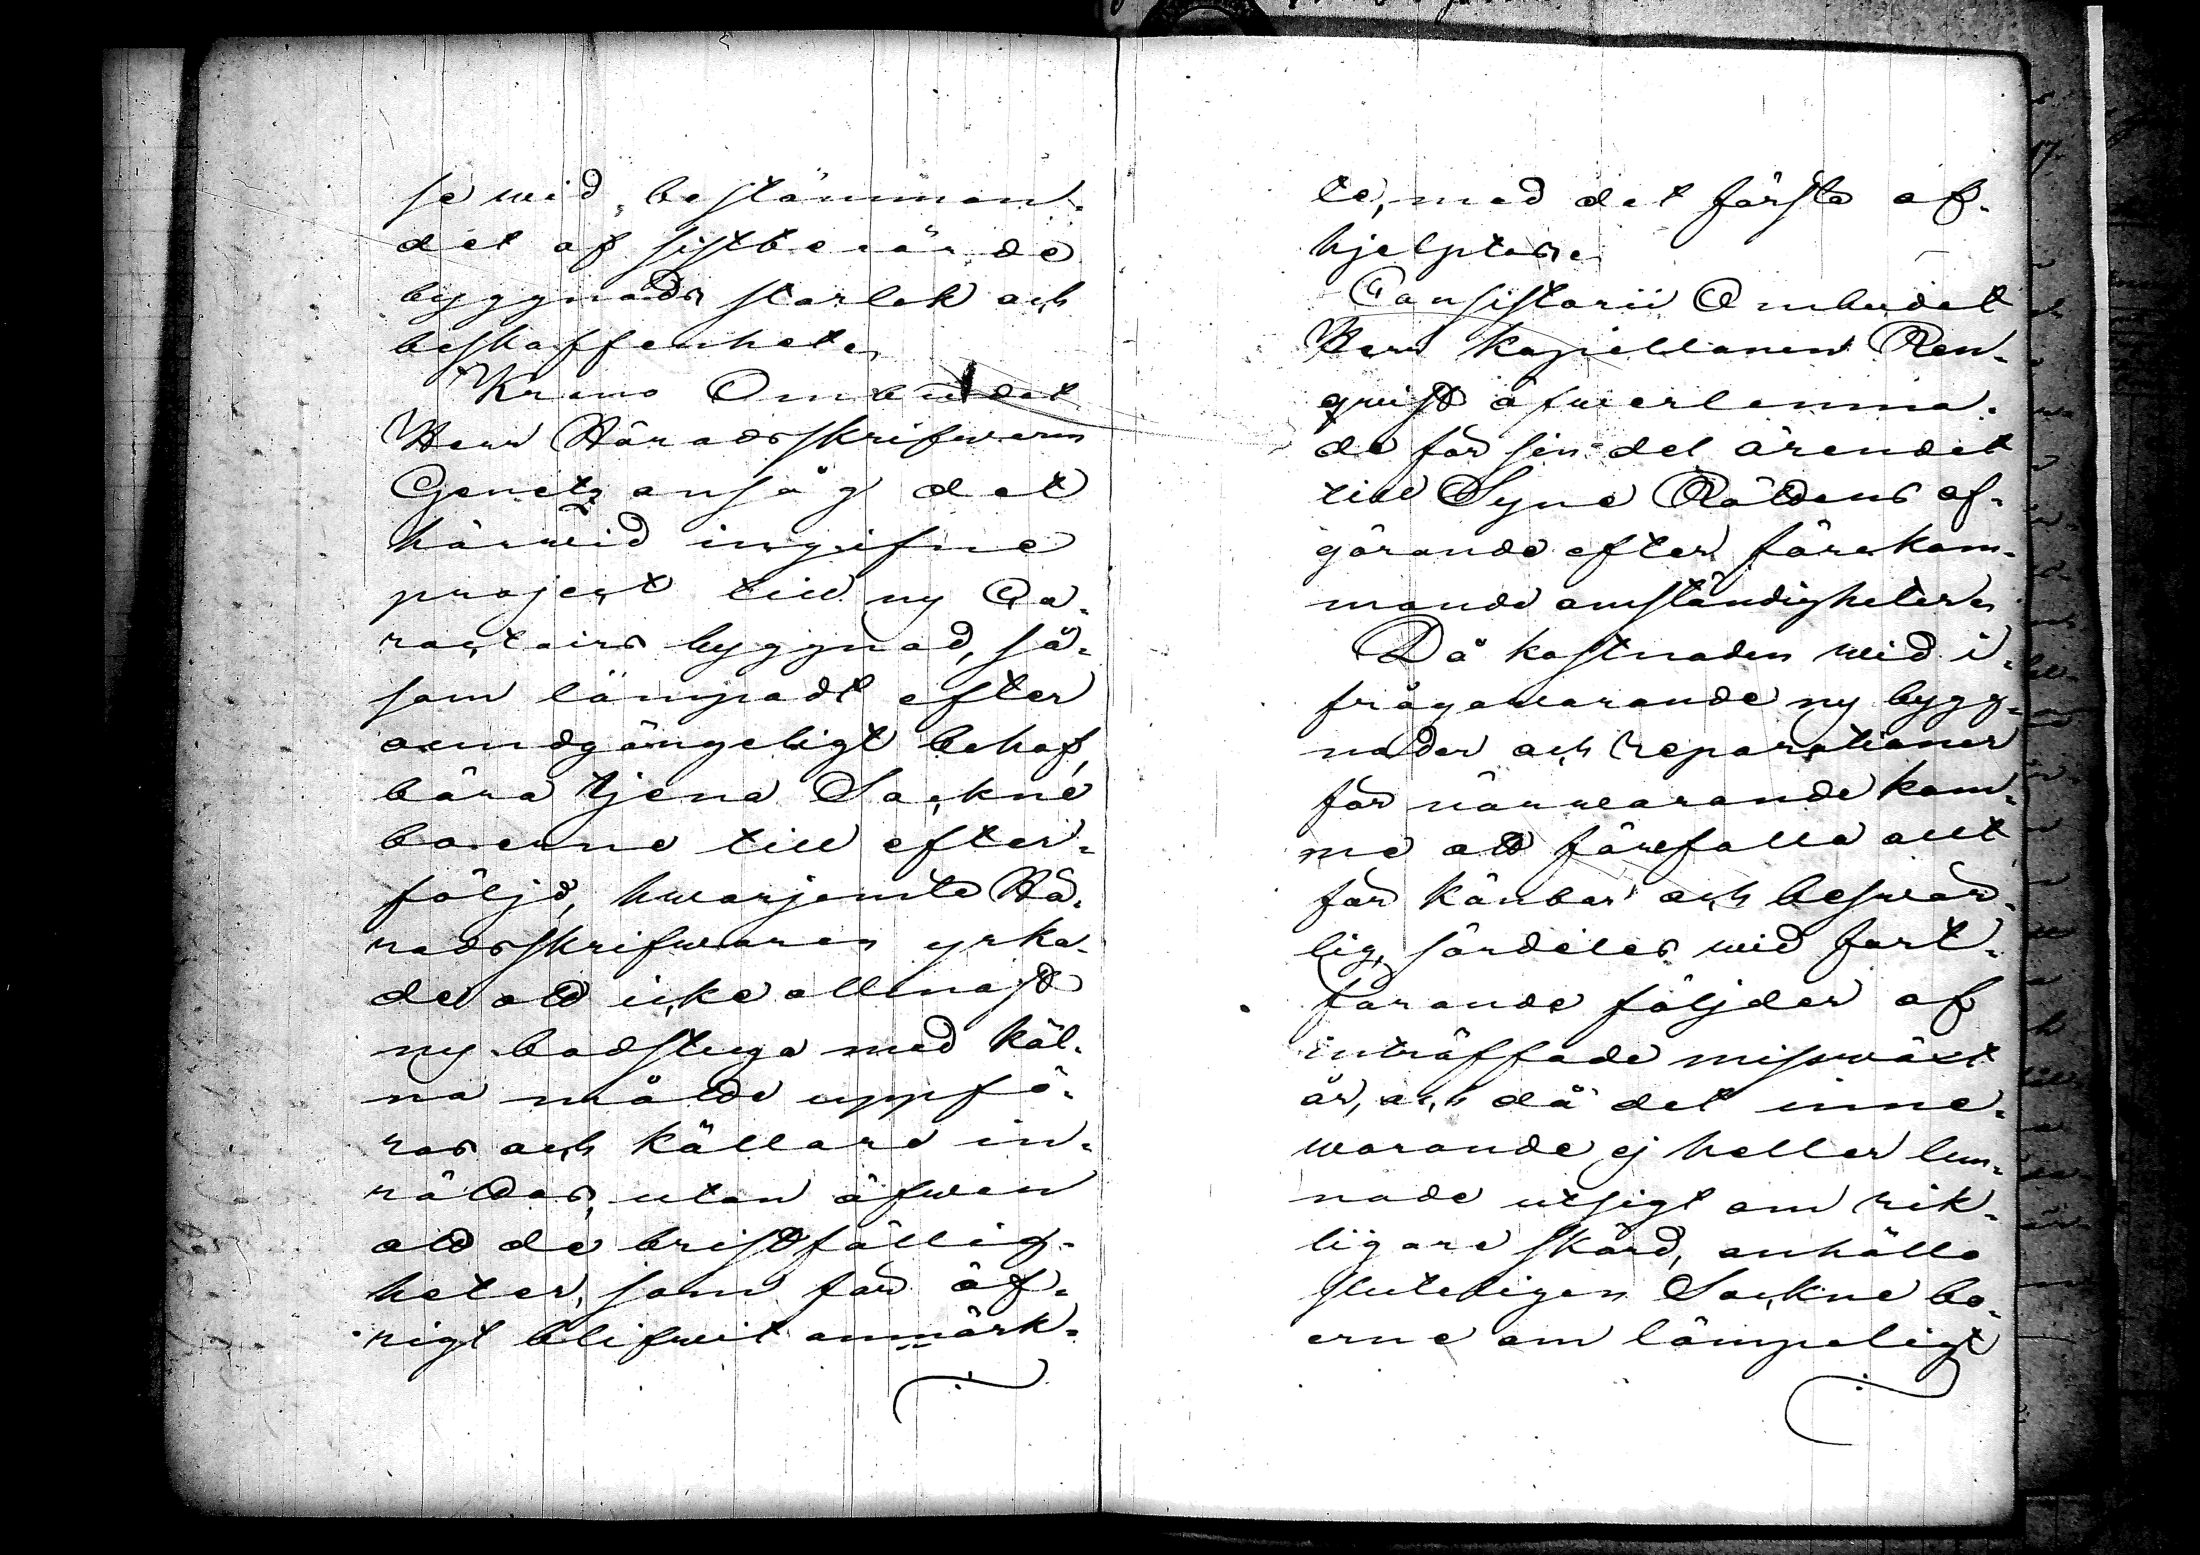 se wid bestämman-
det af sistberörde
byggnads storlek och
beskaffenhet.
Krono Ombudet
Herr Häradsskrifwaren
Genetz ansåg det
härwid ingifne
project till ny Ca-
ractairs byggnad, så-
som lämpadt efter
oumdgängeligt behof,
böra tjena Sockne
boerne till efter-
följd, hwarjemte Hä-
radsskrifwaren yrka-
de att icke allenast
ny badstuga med köl-
na måtte uppfö-
ras och källare in-
rättas, utan äfwen
att de bristfällig-
heter, som för öf-
rigt blifwit anmärk-
te, med det första af-
hjelptes.
Consistorii Ombudet
Herr Kapellanen Ren-
qwist öfwerlemna-
de för sin del ärendet
till Syne Rättens af-
görande efter förekom-
mande omständigheter.
Då kostnaden wid i-
frågawarande ny bygg-
nader och reparationer
för närwarande kom-
me att förefalla allt
för känbar och beswär-
lig, särdeles wid fort-
farande följder af
inträffade missväxt
år, och då det inne-
warande ej heller lem-
nade utsigt om rik-
ligare skörd, anhålla
sluteligen Sockne bo-
erne om lämpeligt